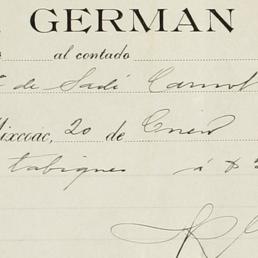 GERMAN
al contado
de Sadi Carnot
Mixcoac, 20 de Enero
tabiques á $